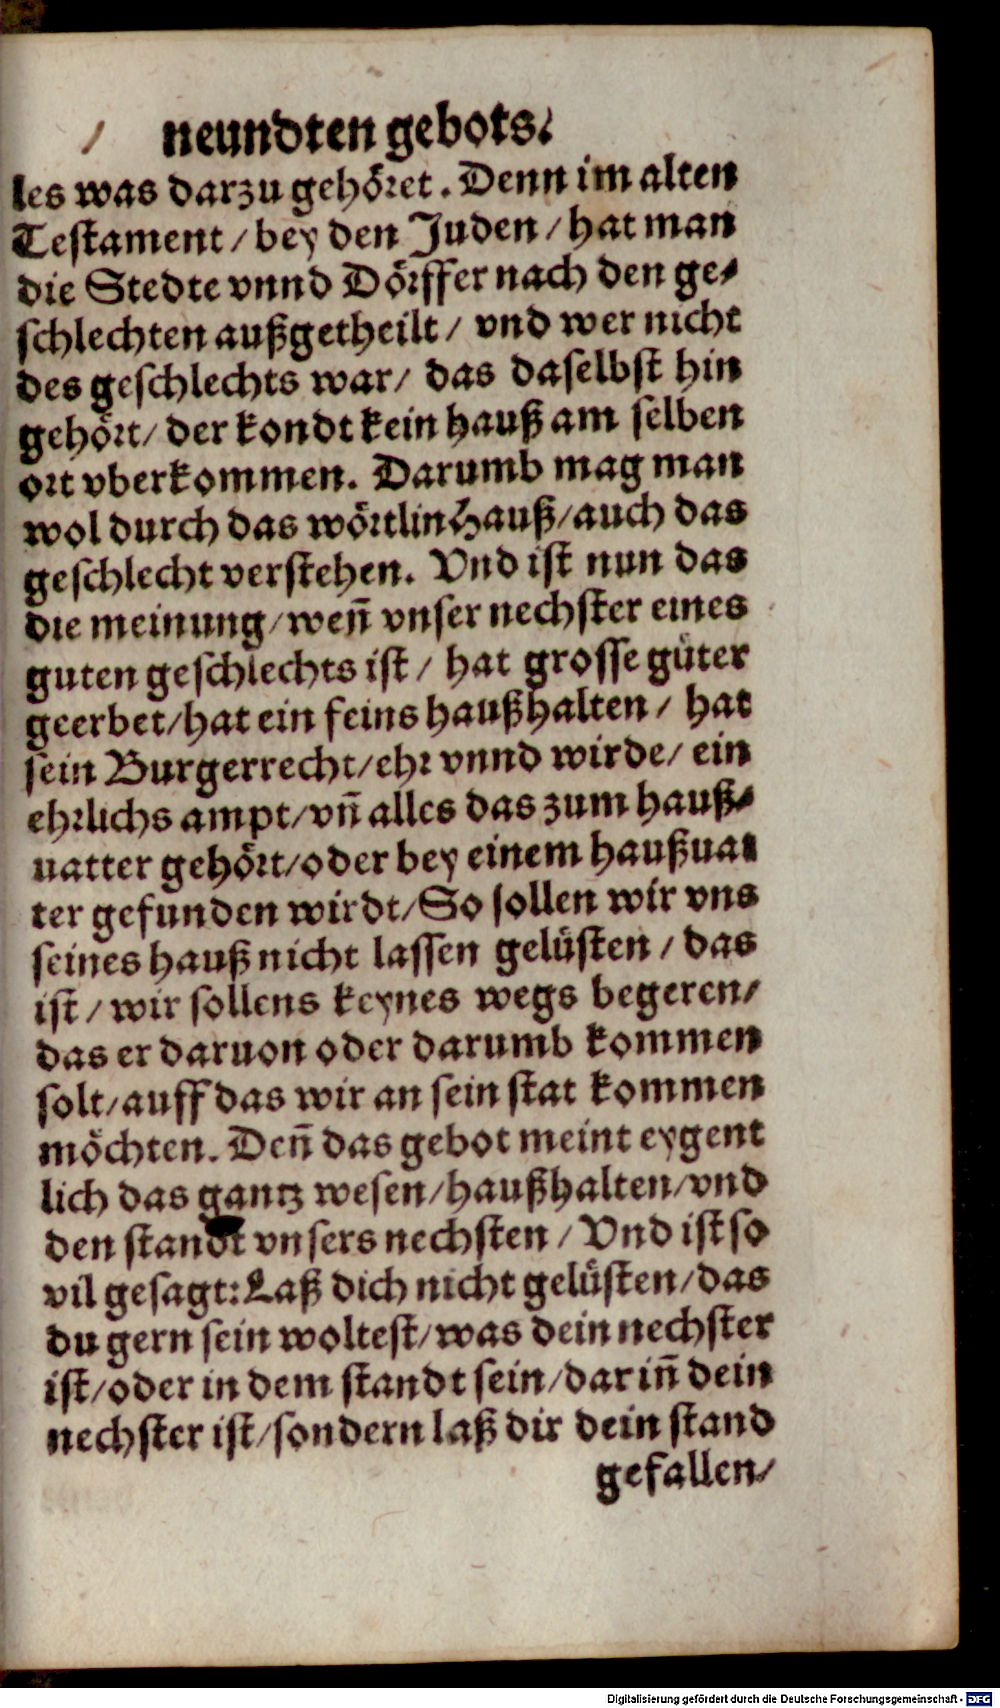 neundten gebots.
les was darzu gehöret. Denn im alten
Testament / bey den Juden / hat man
die Stedte vnnd Dörffer nach den ge-
schlechten außgetheilt / vnd wer nicht
des geschlechts war / das daselbst hin
gehört / der kondt kein hauß am selben
ort vberkommen. Darumb mag man
wol durch das wörtlin Hauß / auch das
geschlecht verstehen. Vnd ist nun das
die meinung / weñ vnser nechster eines
guten geschlechts ist / hat grosse güter
geerbet / hat ein feins haußhalten / hat
sein Burgerrecht / ehr vnnd wirde / ein
ehrlichs ampt / vñ alles das zum hauß-
uatter gehört / oder bey einem haußuat
ter gefunden wirdt / So sollen wir vns
seines hauß nicht lassen gelüsten / das
ist / wir sollens keynes wegs begeren /
das er daruon oder darumb kommen
solt / auff das wir an sein stat kommen
möchten. Deñ das gebot meint eygent
lich das gantz wesen / haußhalten / vnd
den standt vnsers nechsten / Vnd ist so
vil gesagt: Laß dich nicht gelüsten / das
du gern sein woltest / was dein nechster
ist / oder in dem standt sein / dar iñ dein
nechster ist / sondern laß dir dein stand
gefallen /
Digitalisierung gefördert durch die Deutsche Forschungsgemeinschaft - DFG